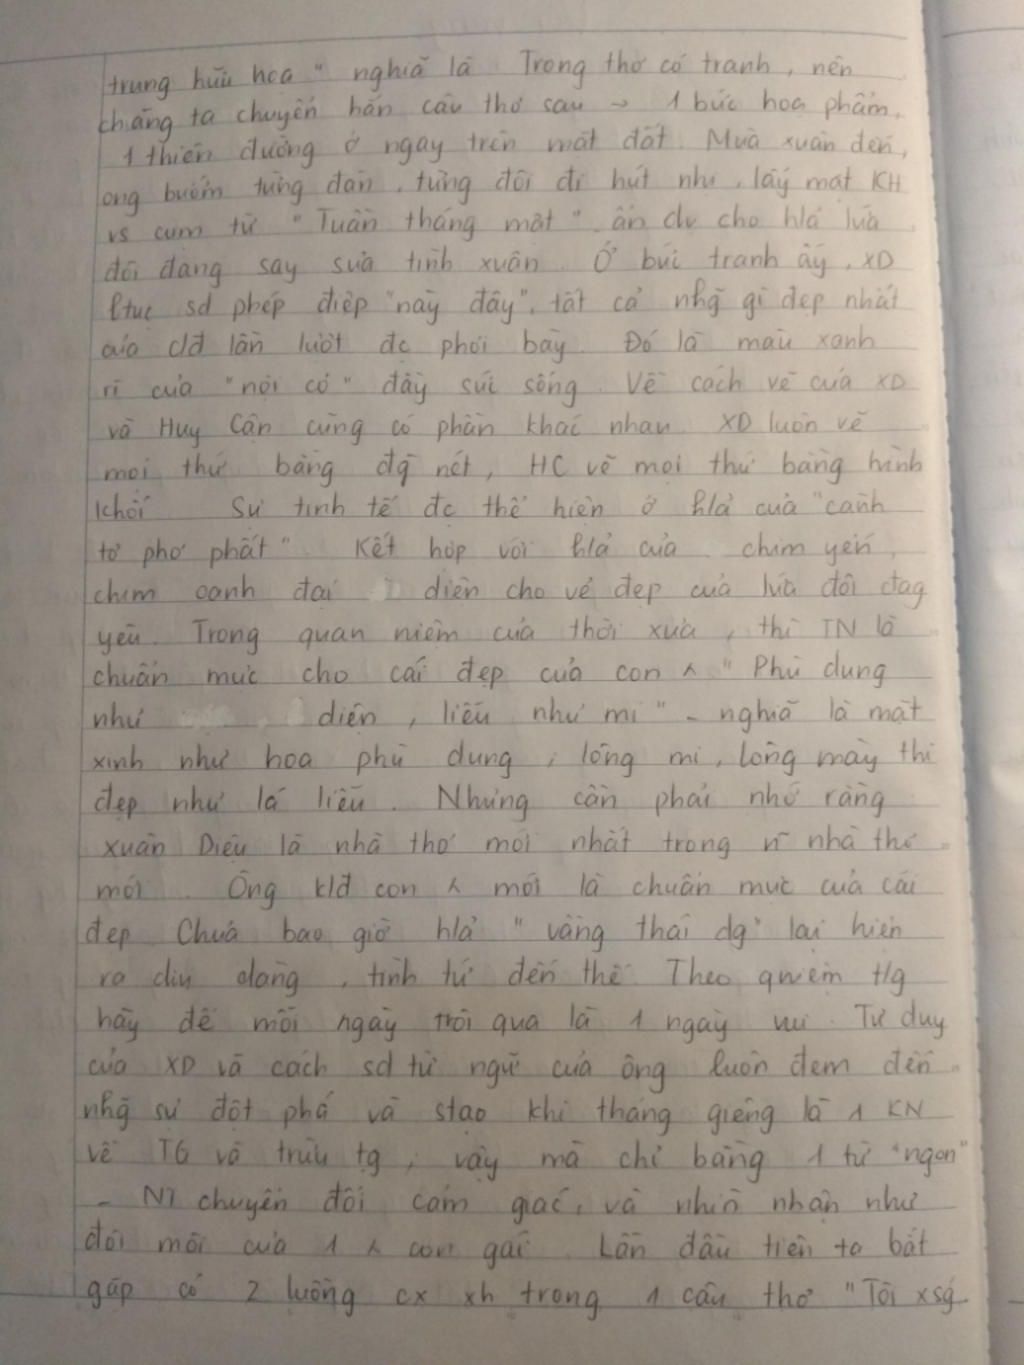 trung hữu hoạ" nghĩa là Trong thơ có tranh, nên
chàng ta chuyển hẳn câu thơ sau → 1 bức hoạ phẩm,
1 thiên đường ở ngay trên mặt đất. Mùa xuân đến,
ong bướm từng đàn, từng đôi đi hút nhị, lấy mật KH
vs cụm từ "Tuần tháng mật" ẩn dụ cho h/ả lứa
đôi đang say sưa tình xuân. Ở bức tranh ấy, XD
ltục sd phép điệp "này đây", tất cả nhg~ gì đẹp nhất
của cđ lần lượt đc phơi bày. Đó là màu xanh
rì của "nội cỏ" đầy sức sống. Về cách vẽ của XD
và Huy Cận cũng có phần khác nhau. XD luôn vẽ
mọi thứ bằng đg nét, HC vẽ mọi thứ bằng hình
khối. Sự tinh tế đc thể hiện ở h/ả của "cành
tơ phơ phất". Kết hợp với h/ả của chim yến,
chim oanh đại diện cho vẻ đẹp của lứa đôi đag
yêu. Trong quan niệm của thời xưa, thì TN là
chuẩn mực cho cái đẹp của con ^ "Phù dung
như diện, liễu như mi" - nghĩa là mặt
xinh như hoa phù dung, lông mi, lông mày thì
đẹp như lá liễu. Nhưng cần phải nhớ rằng
Xuân Diệu là nhà thơ mới nhất trong n~ nhà thơ
mới. Ông kđ con ^ mới là chuẩn mực của cái
đẹp. Chưa bao giờ h/ả "vầng thái dg" lại hiện
ra dịu dàng, tình tứ đến thế. Theo qniệm t/g
hãy để mỗi ngày trôi qua là 1 ngày vui. Tư duy
của XD và cách sd từ ngữ của ông luôn đem đến
nhg~ sự đột phá và stạo khi tháng giêng là 1 KN
về TG và trừu tg, vậy mà chỉ bằng 1 từ "ngon"
- NT chuyển đổi cảm giác, và nhìn nhận như
đôi môi của 1 ^ con gái. Lần đầu tiên ta bắt
gặp có 2 luồng cx xh trong 1 câu thơ "Tôi xsg